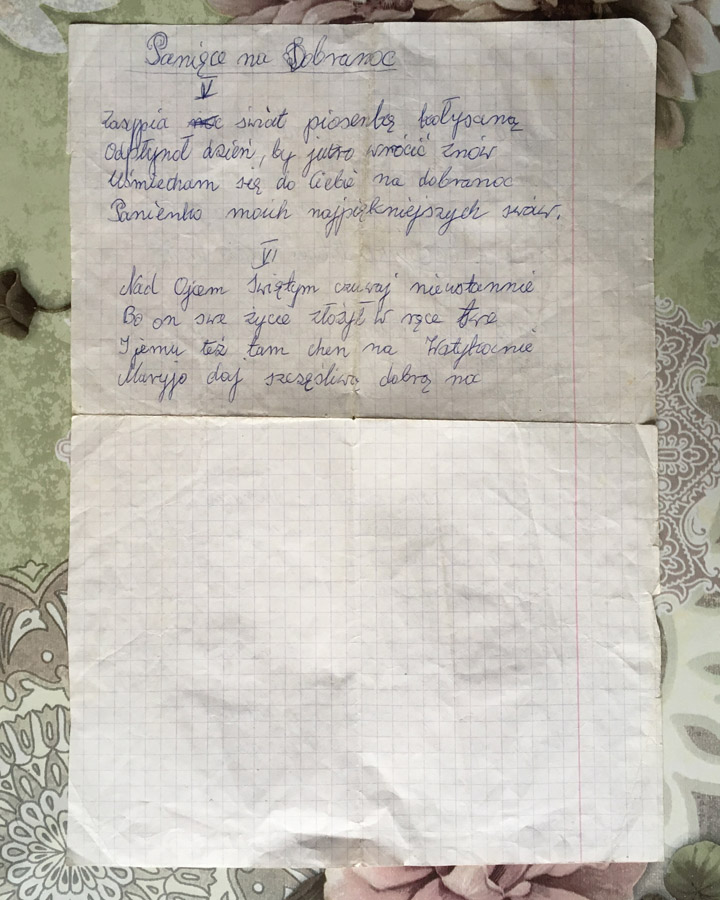 Panięce na Dobranoc
V
Zasypia świat piosenką kołysaną
Odpłynoł dzień, by jutro wrócić znów
Uśmiecham się do Ciebie na dobranoc
Panienko moich najpiękniejszych snów.
VI
Nad Ojcem Świętym czuwaj nieustannie
Bo on swe życie złożył w ręce Twe
I jemu też tam hen na Watykanie
Maryjo daj szczęśliwą dobrą noc